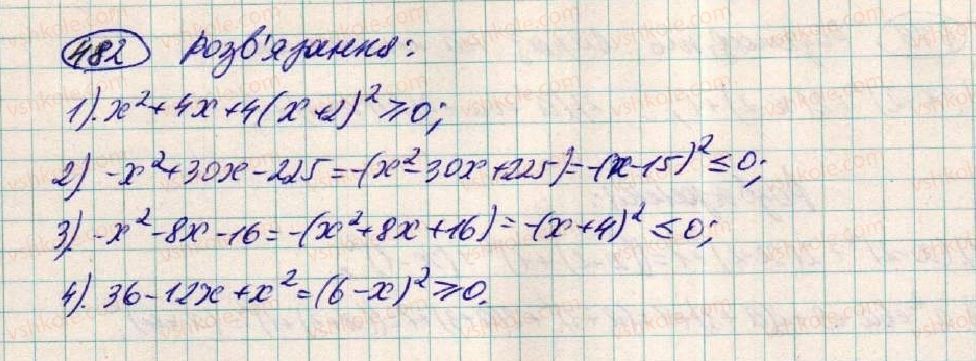 482 Розв'язання:
1). x²+4x+4(x+2)²≥0;
2) -x²+30x-225=-(x²-30x+225)=-(x-15)²≤0;
3). -x²-8x-16=-(x²+8x+16)=-(x+4)²≤0;
4). 36-12x+x²=(6-x)²≥0.